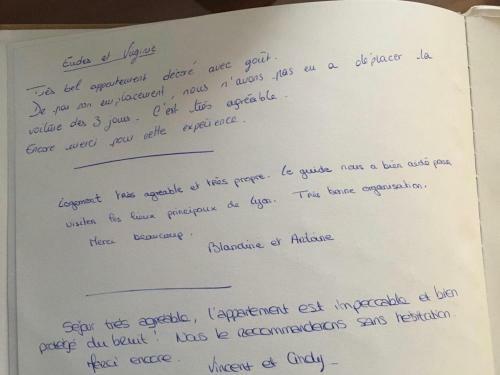 Eudes et Virginie
Très bel appartement décoré avec goût.
De par son emplacement, nous n'avons pas eu a déplacer la
voiture des 3 jours. C'est très agréable.
Encore merci pour cette expérience.
Logement très agréable et très propre. Le guide nous a bien aidé pour
visiter les lieux principaux de Lyon. Très bonne organisation.
Merci beaucoup.
Blandine et Antoine
Séjour très agréable, l'appartement est impeccable et bien
protégé du bruit! Nous le recommanderons sans hésitation.
Merci encore.
Vincent et Cindy